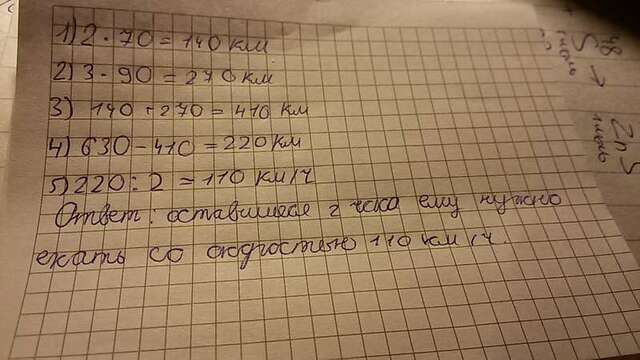 1) 2 · 70 = 140 км
2) 3 · 90 = 270 км
3) 140 + 270 = 410 км
4) 630 - 410 = 220 км
5) 220 : 2 = 110 км/ч
Ответ: оставшиеся 2 часа ему нужно
ехать со скоростью 110 км/ч.
S →
ZnS